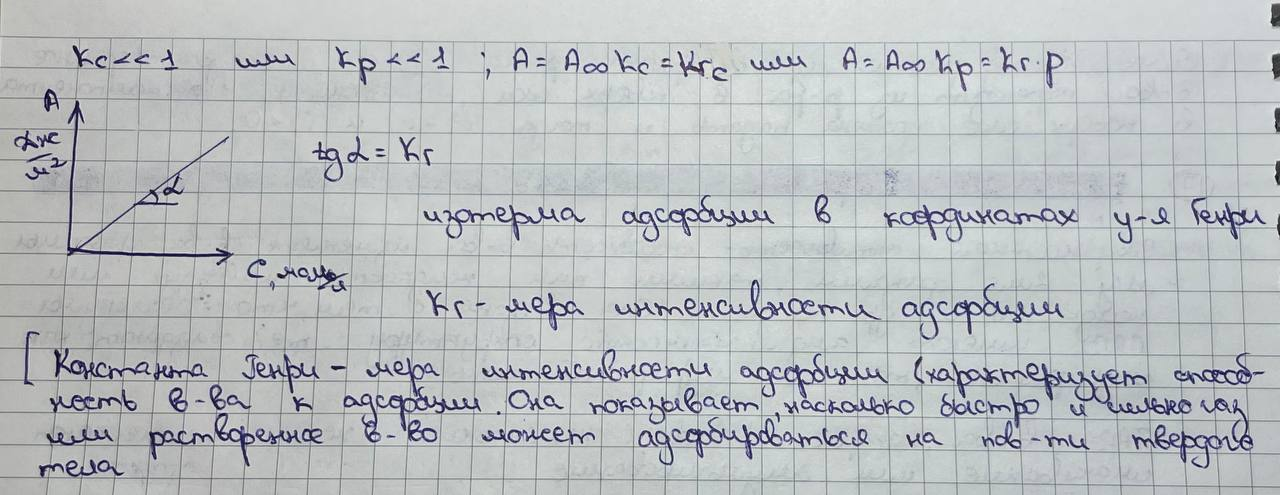 Kc<<1 или Kp<<1 ; A = A∞Kc = Kгc или A = A∞Kp = Kг·p
A
Дж/м²
α
tgα = Kг
изотерма адсорбции в координатах у-я Генри
C, моль/л
Kг - мера интенсивности адсорбции
[ Константа Генри - мера интенсивности адсорбции (характеризует способ-
ность в-ва к адсорбции. Она показывает, насколько быстро и сильно газ
или растворенное в-во может адсорбироваться на пов-ти твердого
тела